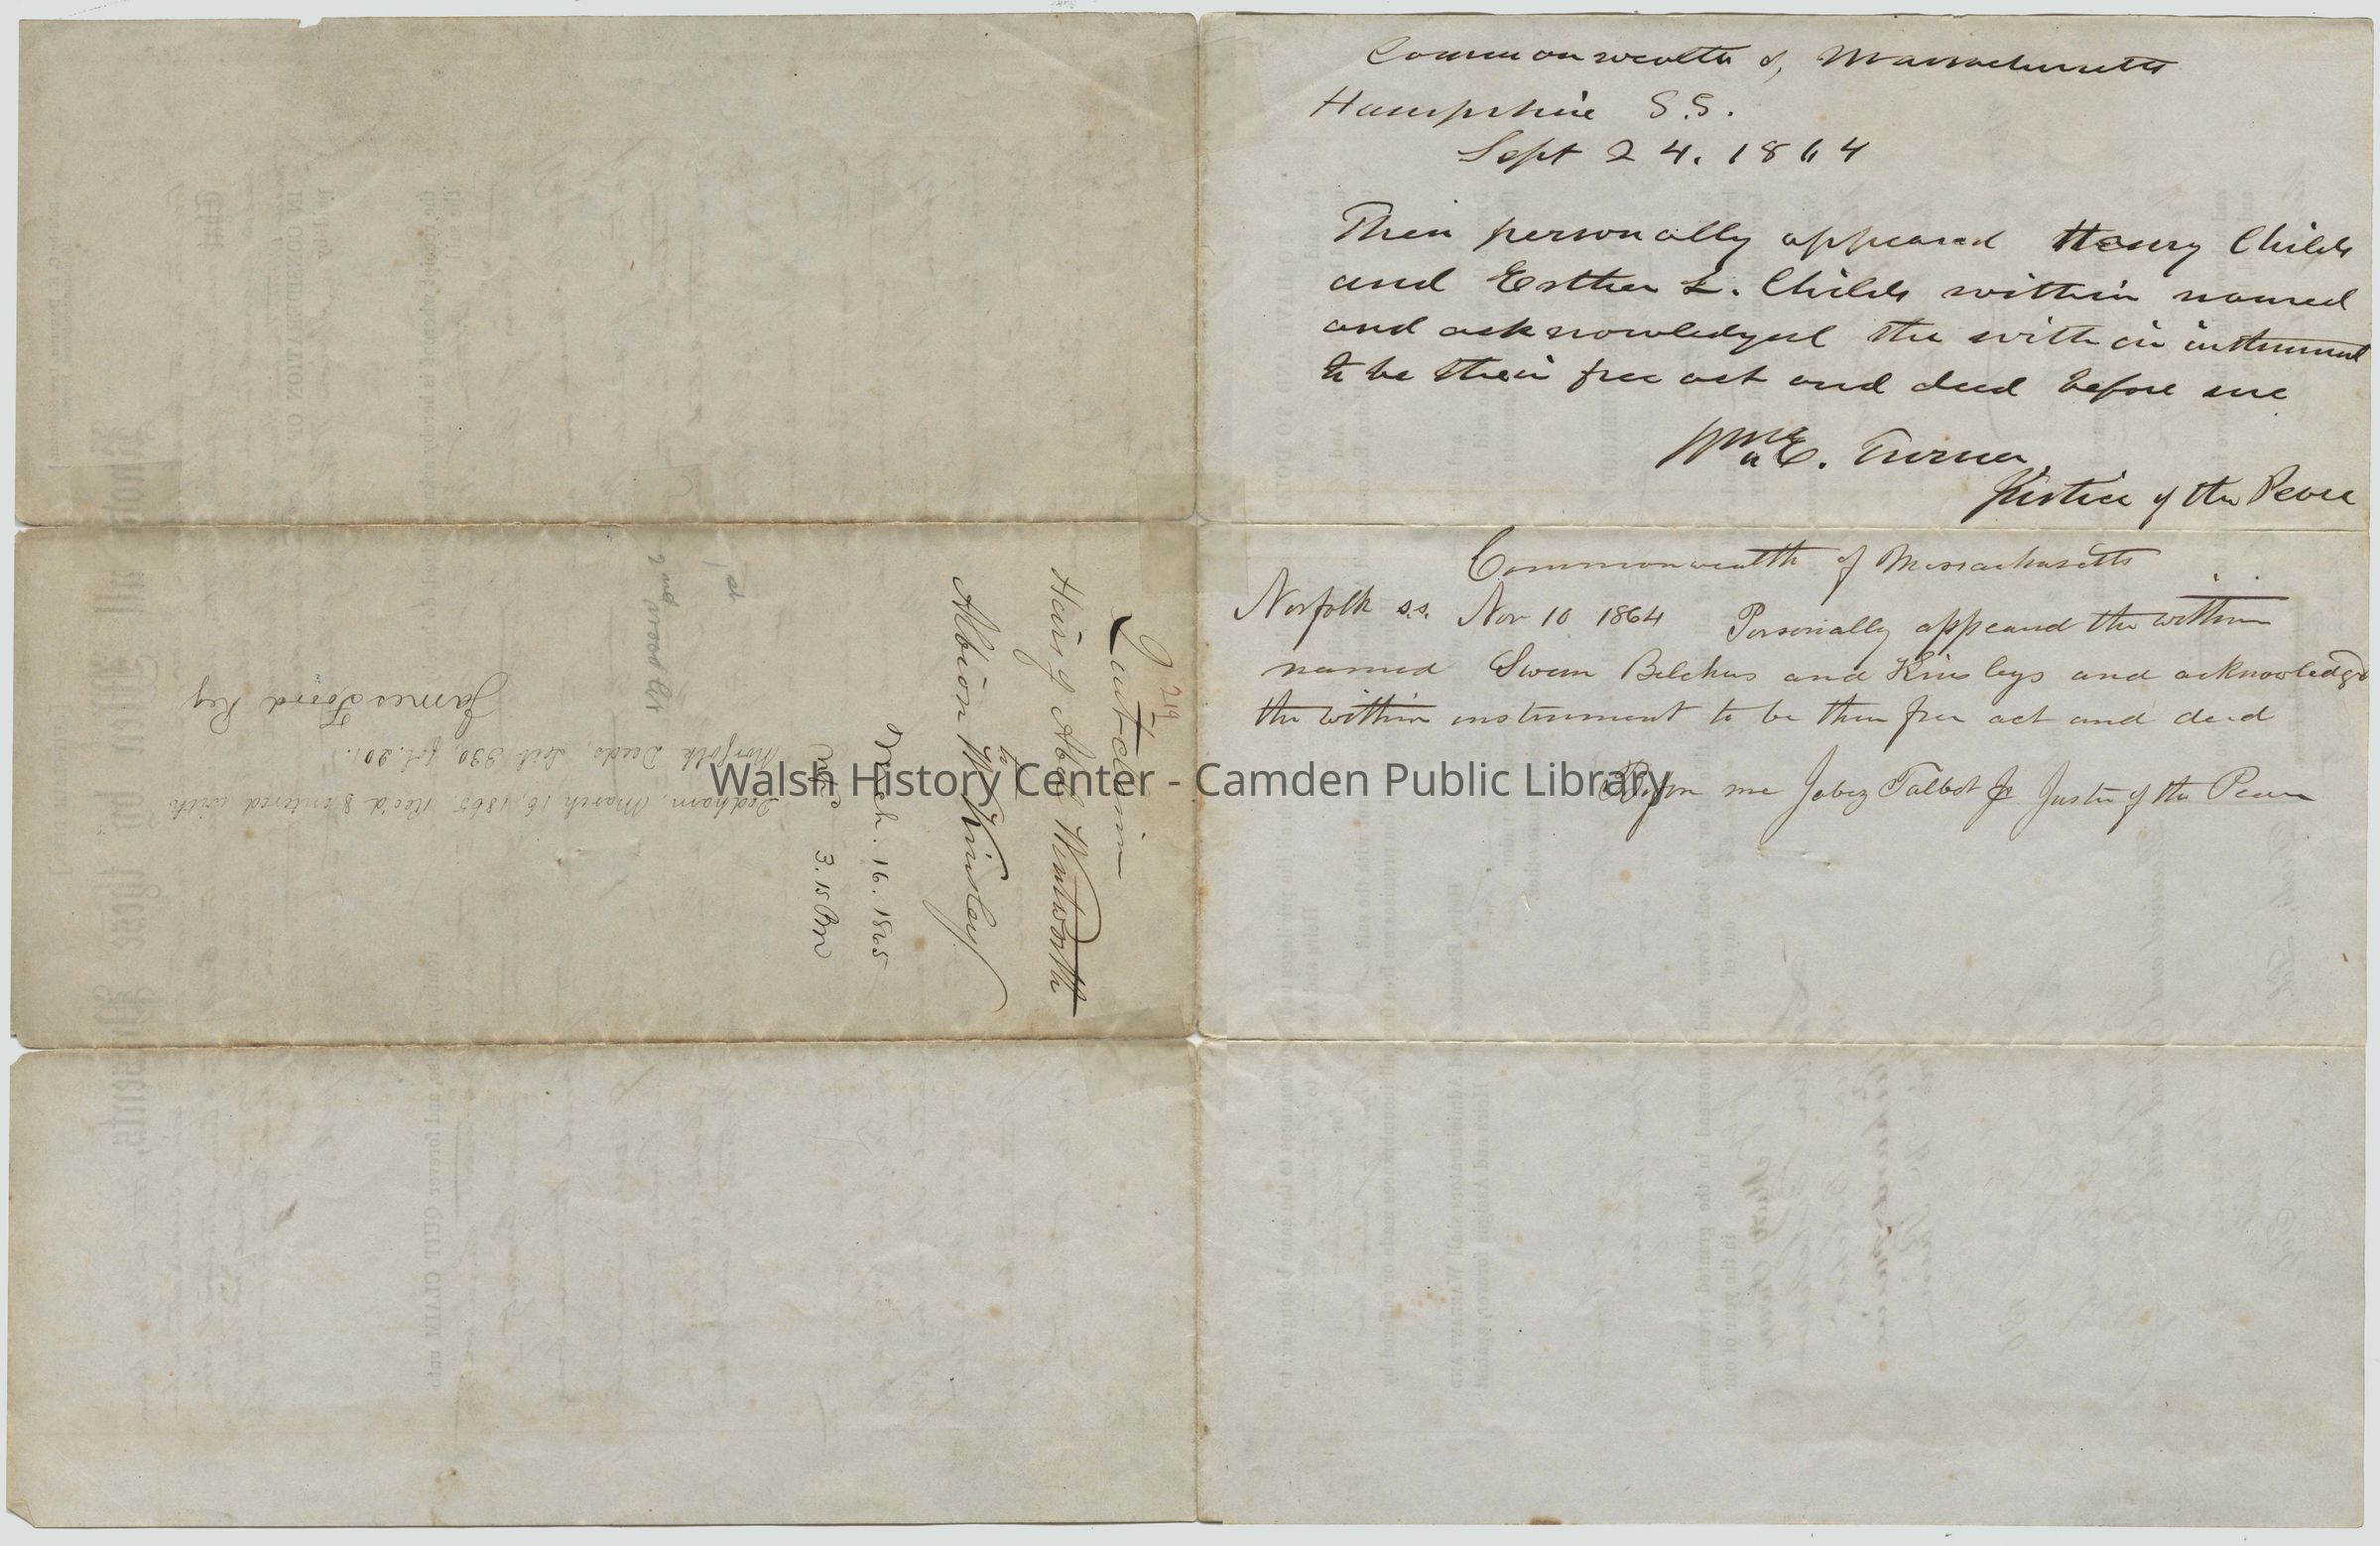 Commonwealth of Massachusetts
Hampshire S.S.
Sept 24. 1864
Then personally appeared Henry Childs
and Esther L. Childs within named
and acknowledged the within instrument
to be their free act and deed before me
Wm C. Turner
Justice of the Peace
Commonwealth of Massachusetts
Norfolk s.s. Nov 10 1864 Personally appeared the within
named Swan Belchers and Kinsleys and acknowledged
the within instrument to be their free act and deed
Before me Jabez Talbot Jr Justice of the Peace
219
Quitclaim
Heirs of Abel Wentworth
to
Albion W Kinsley
March. 16. 1865
3. 15 Pm
Dedham, March 16, 1865. Rec'd & entered with
Norfolk Deeds, Lib. 330, fol. 201.
James Foord Reg
2nd wood lot
Walsh History Center - Camden Public Library